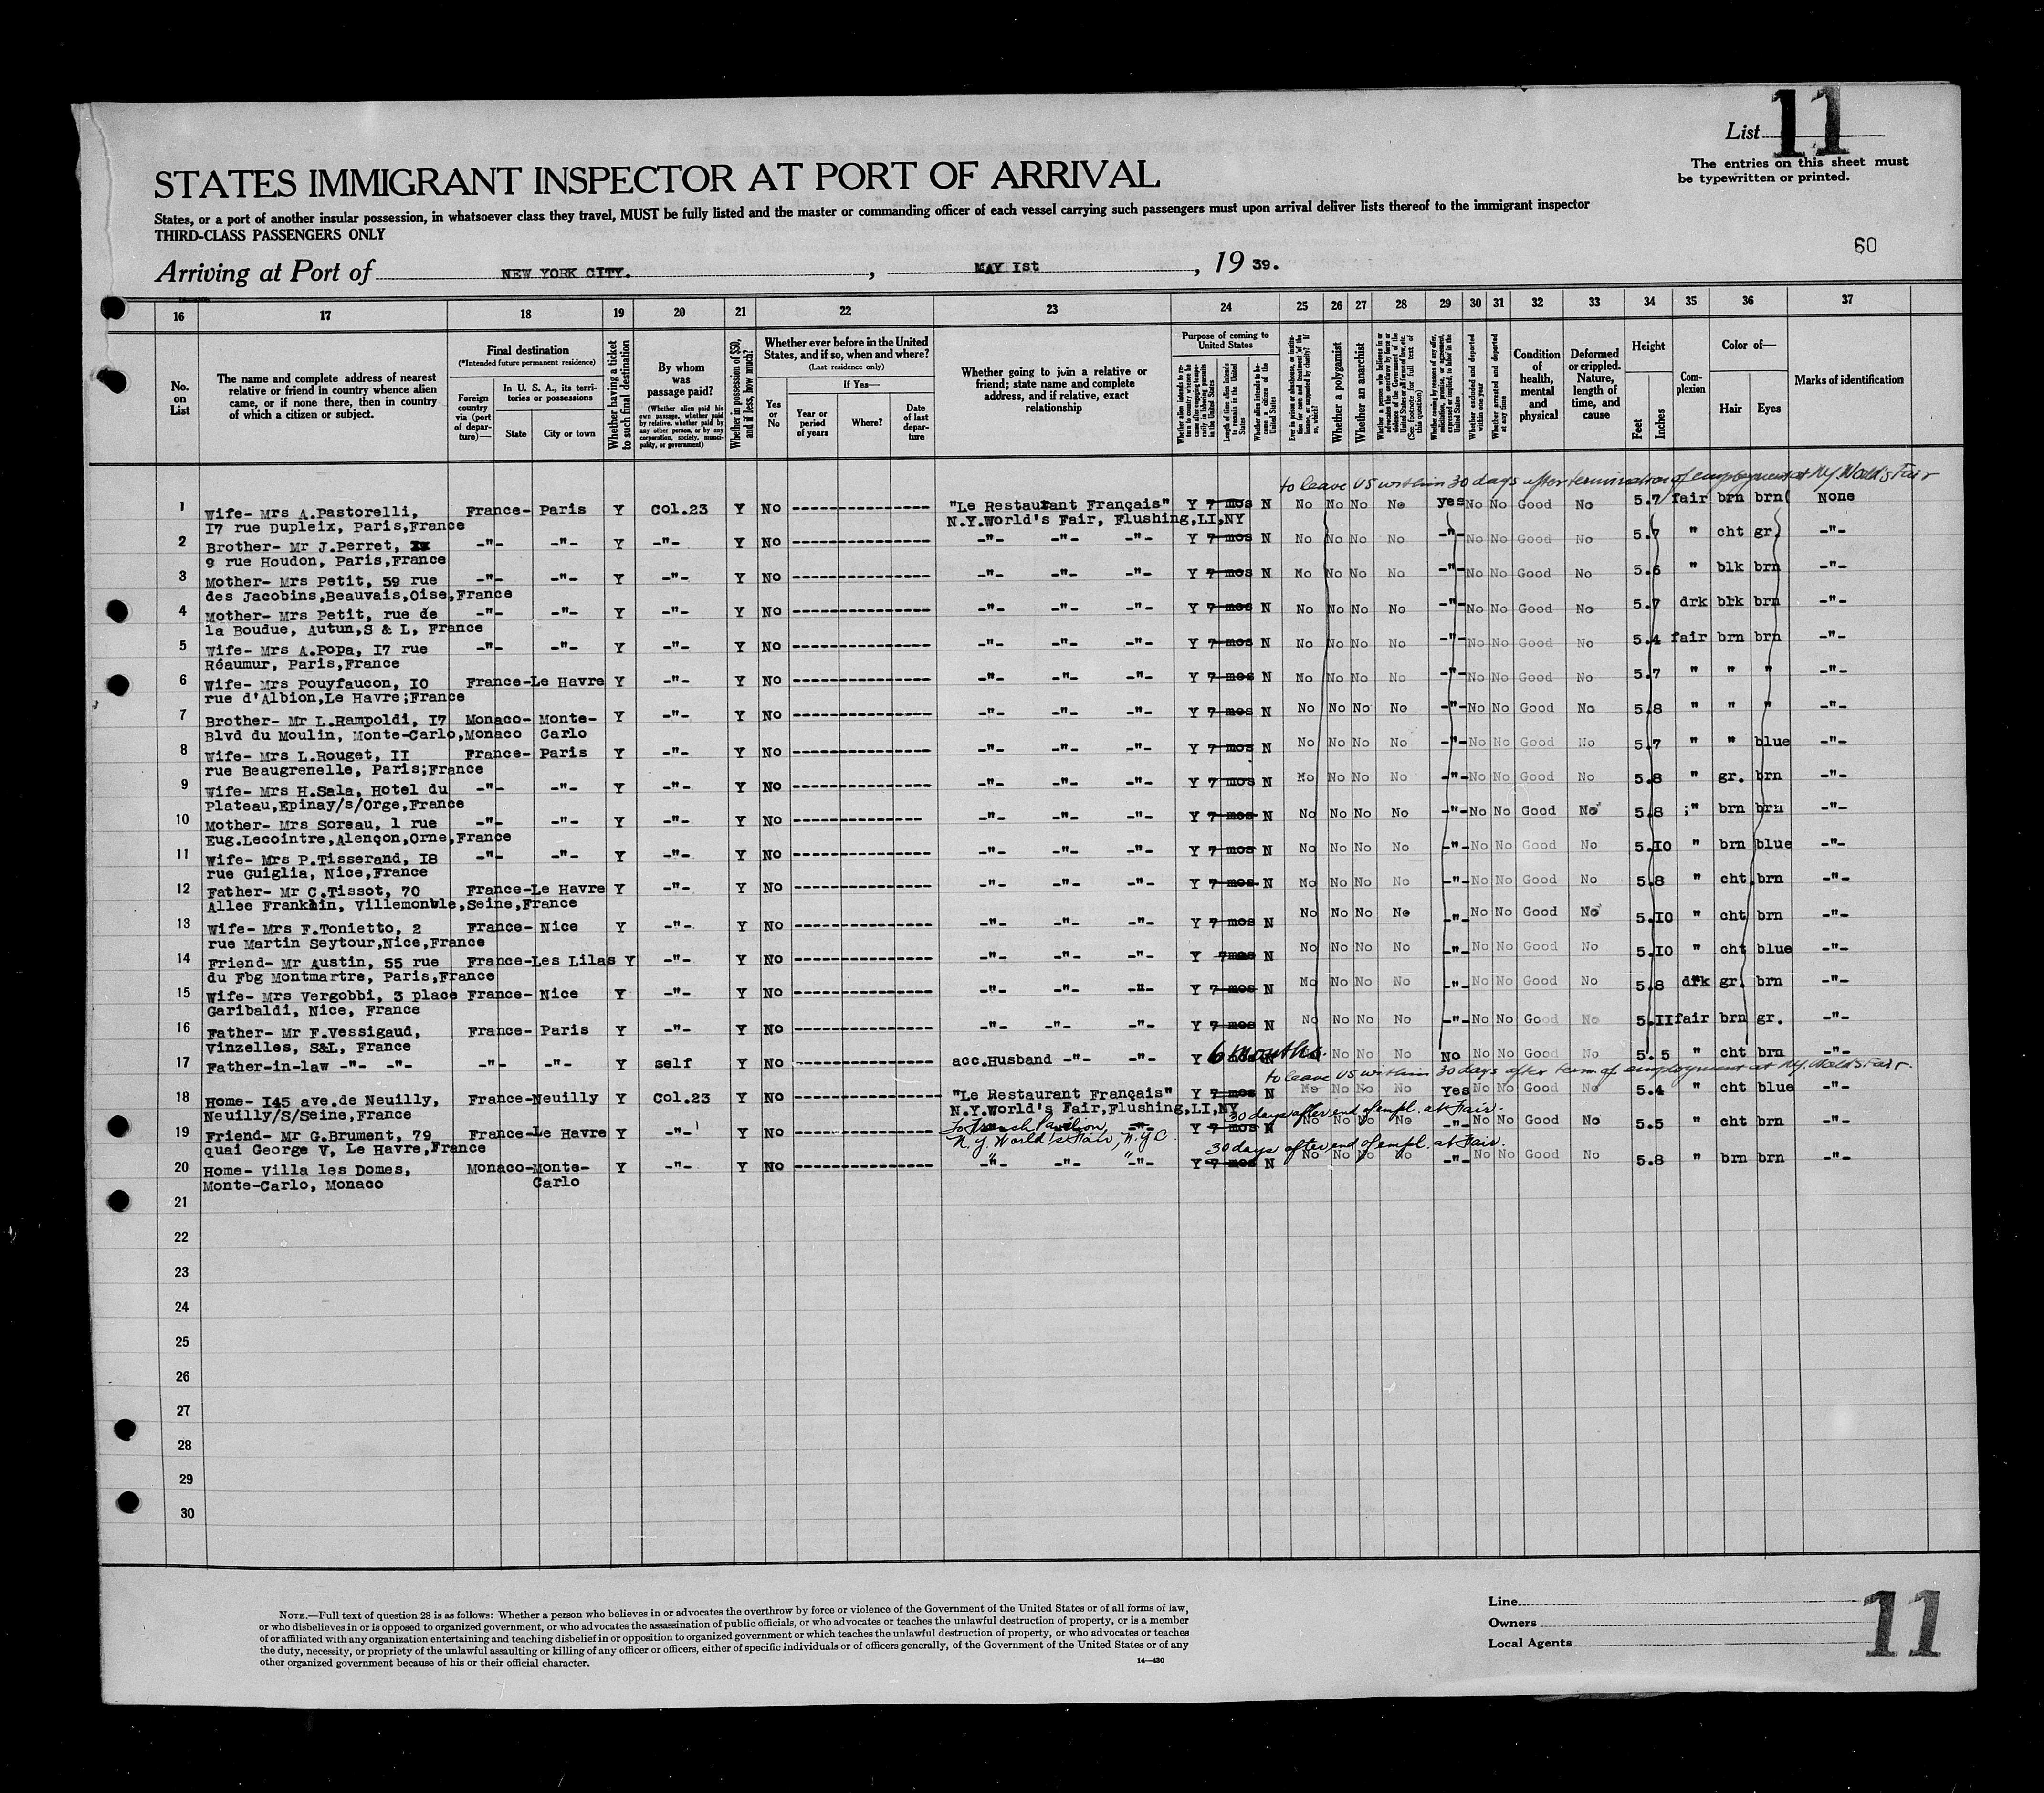 List 11
The entries on this sheet must
be typewritten or printed.
STATES IMMIGRANT INSPECTOR AT PORT OF ARRIVAL
States, or a port of another insular possession, in whatsoever class they travel, MUST be fully listed and the master or commanding officer of each vessel carrying such passengers must upon arrival deliver lists thereof to the immigrant inspector
THIRD-CLASS PASSENGERS ONLY
60
Arriving at Port of NEW YORK CITY. , MAY Ist , 19 39.
16 17 18 19 20 21 22 23 24 25 26 27 28 29 30 31 32 33 34 35 36 37
No. on List
The name and complete address of nearest relative or friend in country whence alien came, or if none there, then in country of which a citizen or subject.
Final destination
(*Intended future permanent residence)
Foreign country via (port of departure)—
In U. S. A., its territories or possessions
State City or town
Whether having a ticket to such final destination
By whom was passage paid?
(Whether alien paid his own passage, whether paid by relative, whether paid by any other person, or by any corporation, society, municipality, or government)
Whether in possession of $50, and if less, how much?
Whether ever before in the United States, and if so, when and where?
(Last residence only)
Yes or No
If Yes—
Year or period of years Where? Date of last departure
Whether going to join a relative or friend; state name and complete address, and if relative, exact relationship
Purpose of coming to United States
Whether alien intends to return to country whence he came after engaging temporarily in laboring pursuits in the United States
Length of time alien intends to remain in the United States
Whether alien intends to become a citizen of the United States
Ever in prison or almshouse, or institution for care and treatment of the insane, or supported by charity? If so, which?
Whether a polygamist
Whether an anarchist
Whether a person who believes in or advocates the overthrow by force or violence of the Government of the United States or all forms of law, etc. (See footnote for full text of this question)
Whether coming by reasons of any offer, solicitation, promise, or agreement, expressed or implied, to labor in the United States
Whether excluded and deported within one year
Whether arrested and deported at any time
Condition of health, mental and physical
Deformed or crippled. Nature, length of time, and cause
Height
Feet Inches
Complexion
Color of—
Hair Eyes
Marks of identification
to leave US within 30 days after termination of employment at NY. World's Fair
1 Wife- Mrs A.Pastorelli, France- Paris Y Col.23 Y No "Le Restaurant Français" Y 7 mos N No No No No yes No No Good No 5.7 fair brn brn None
I7 rue Dupleix, Paris,France N.Y.World's Fair, Flushing,LI,NY
2 Brother- Mr J.Perret, -"- -"- Y -"- Y No -"- -"- -"- Y 7 mos N No No No No -"- No No Good No 5.7 " cht gr. -"-
9 rue Houdon, Paris,France
3 Mother- Mrs Petit, 59 rue -"- -"- Y -"- Y No -"- -"- -"- Y 7 mos N No No No No -"- No No Good No 5.6 " blk brn -"-
des Jacobins,Beauvais,Oise,France
4 Mother- Mrs Petit, rue de -"- -"- Y -"- Y No -"- -"- -"- Y 7 mos N No No No No -"- No No Good No 5.7 drk blk brn -"-
la Boudue, Autun,S & L, France
5 Wife- Mrs A.Popa, I7 rue -"- -"- Y -"- Y No -"- -"- -"- Y 7 mos N No No No No -"- No No Good No 5.4 fair brn brn -"-
Réaumur, Paris,France
6 Wife- Mrs Pouyfaucon, IO France-Le Havre Y -"- Y No -"- -"- -"- Y 7 mos N No No No No -"- No No Good No 5.7 " " " -"-
rue d'Albion,Le Havre;France
7 Brother- Mr L.Rampoldi, I7 Monaco- Monte- Y -"- Y No -"- -"- -"- Y 7 mos N No No No No -"- No No Good No 5.8 " " " -"-
Blvd du Moulin, Monte-Carlo,Monaco Carlo
8 Wife- Mrs L.Rouget, II France- Paris Y -"- Y No -"- -"- -"- Y 7 mos N No No No No -"- No No Good No 5.7 " " blue -"-
rue Beaugrenelle, Paris;France
9 Wife- Mrs H.Sala, Hotel du -"- -"- Y -"- Y No -"- -"- -"- Y 7 mos N No No No No -"- No No Good No 5.8 " gr. brn -"-
Plateau,Epinay/s/Orge,France
10 Mother- Mrs Soreau, l rue -"- -"- Y -"- Y No -"- -"- -"- Y 7 mos N No No No No -"- No No Good No 5.8 ;" brn brn -"-
Eug.Lecointre,Alençon,Orne,France
11 Wife- Mrs P.Tisserand, I8 -"- -"- Y -"- Y No -"- -"- -"- Y 7 mos N No No No No -"- No No Good No 5.IO " brn blue -"-
rue Guiglia, Nice,France
12 Father- Mr C.Tissot, 70 France-Le Havre Y -"- Y No -"- -"- -"- Y 7 mos N No No No No -"- No No Good No 5.8 " cht. brn -"-
Allee Franklin, Villemomble,Seine,France
13 Wife- Mrs F.Tonietto, 2 France- Nice Y -"- Y No -"- -"- -"- Y 7 mos N No No No No -"- No No Good No 5.IO " cht brn -"-
rue Martin Seytour,Nice,France
14 Friend- Mr Austin, 55 rue France-Les Lilas Y -"- Y No -"- -"- -"- Y 7mos N No No No No -"- No No Good No 5.IO " cht blue -"-
du Fbg Montmartre, Paris,France
15 Wife- Mrs Vergobbi, 3 place France- Nice Y -"- Y No -"- -"- -"- Y 7 mos N No No No No -"- No No Good No 5.8 drk gr. brn -"-
Garibaldi, Nice, France
16 Father- Mr F.Vessigaud, France- Paris Y -"- Y No -"- -"- -"- Y 7 mos N No No No No -"- No No Good No 5.II fair brn gr. -"-
Vinzelles, S&L, France
17 Father-in-law -"- -"- -"- -"- Y self Y No acc.Husband -"- -"- Y 6 months. N No No No No No No Good No 5.5 " cht brn -"-
to leave US within 30 days after term. of employment at Ny. World's Fair.
18 Home- I45 ave.de Neuilly, France-Neuilly Y Col.23 Y No "Le Restaurant Français" Y 7 mos N No No No No Yes No No Good No 5.4 " cht blue -"-
Neuilly/S/Seine,France N.Y.World's Fair,Flushing,LI,NY 30 days after end of empl. at Fair.
19 Friend- Mr G.Brument, 79 France-Le Havre Y -"- Y No To French Pavilion, -"- Y 7 mos N No No No No -"- No No Good No 5.5 " cht brn -"-
quai George V, Le Havre,France N.Y. World's Fair, N.Y.C. 30 days after end of empl. at Fair.
20 Home- Villa les Domes, Monaco-Monte- Y -"- Y No -"- -"- -"- Y 7 mos N No No No No -"- No No Good No 5.8 " brn brn -"-
Monte-Carlo, Monaco Carlo
21
22
23
24
25
26
27
28
29
30
NOTE.—Full text of question 28 is as follows: Whether a person who believes in or advocates the overthrow by force or violence of the Government of the United States or of all forms of law,
or who disbelieves in or is opposed to organized government, or who advocates the assassination of public officials, or who advocates or teaches the unlawful destruction of property, or is a member
of or affiliated with any organization entertaining and teaching disbelief in or opposition to organized government or which teaches the unlawful destruction of property, or who advocates or teaches
the duty, necessity, or propriety of the unlawful assaulting or killing of any officer or officers, either of specific individuals or of officers generally, of the Government of the United States or of any
other organized government because of his or their official character.
14—430
Line
Owners
Local Agents
11